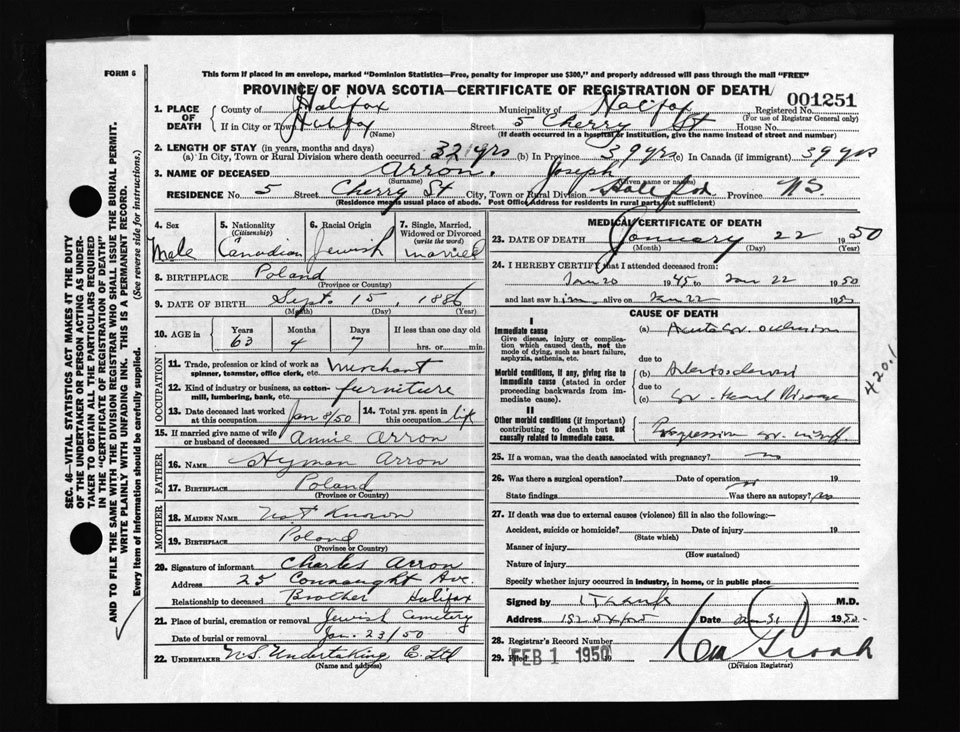 FORM 6
This form if placed in an envelope, marked "Dominion Statistics—Free, penalty for improper use $300," and properly addressed will pass through the mail "FREE"
PROVINCE OF NOVA SCOTIA—CERTIFICATE OF REGISTRATION OF DEATH
001251
1. PLACE OF DEATH County of Halifax Municipality of Halifax Registered No.
(For use of Registrar General only)
If in City or Town Halifax Street 5 Cherry St House No.
(Name) (If death occurred in a hospital or institution, give the name instead of street and number)
2. LENGTH OF STAY (in years, months and days)
(a) In City, Town or Rural Division where death occurred 32 yrs (b) In Province 39 yrs (c) In Canada (if immigrant) 39 yrs
3. NAME OF DECEASED Arron, Joseph
(Surname) (Given name or names)
RESIDENCE No. 5 Street Cherry St City, Town or Rural Division Halifax Province N.S.
(Residence means usual place of abode. Post Office Address for residents in rural parts not sufficient)
4. Sex 5. Nationality (Citizenship) 6. Racial Origin 7. Single, Married, Widowed or Divorced (write the word)
Male Canadian Jewish married
8. BIRTHPLACE Poland
(Province or Country)
9. DATE OF BIRTH Sept. 15, 1886
(Month) (Day) (Year)
10. AGE in Years Months Days If less than one day old
63 4 7 hrs. or min.
OCCUPATION
11. Trade, profession or kind of work as spinner, teamster, office clerk, etc. Merchant
12. Kind of industry or business, as cotton-mill, lumbering, bank, etc. furniture
13. Date deceased last worked at this occupation Jan 8/50 14. Total yrs. spent in this occupation life
15. If married give name of wife or husband of deceased Annie Arron
FATHER
16. NAME Hyman Arron
17. BIRTHPLACE Poland
(Province or Country)
MOTHER
18. MAIDEN NAME Not Known
19. BIRTHPLACE Poland
(Province or Country)
20. Signature of informant Charles Arron
Address 25 Connaught Ave.
Relationship to deceased Brother Halifax
21. Place of burial, cremation or removal Jewish Cemetery
Date of burial or removal Jan. 23/50
22. UNDERTAKER N.S. Undertaking C. Ltd
(Name and address)
MEDICAL CERTIFICATE OF DEATH
23. DATE OF DEATH January 22 1950
(Month) (Day) (Year)
24. I HEREBY CERTIFY that I attended deceased from:
Jan 20 1945 to Jan 22 1950
and last saw him alive on Jan 22 1950
CAUSE OF DEATH
I
Immediate cause
Give disease, injury or complication which caused death, not the mode of dying, such as heart failure, asphyxia, asthenia, etc.
(a) Acute Cor. occlusion
due to
Morbid conditions, if any, giving rise to immediate cause (stated in order proceeding backwards from immediate cause).
(b)
due to
(c) Cor. Heart Disease
420.1
II
Other morbid conditions (if important) contributing to death but not causally related to immediate cause.
Progressive Cor. insuff
25. If a woman, was the death associated with pregnancy? no
26. Was there a surgical operation? Date of operation 19
State findings Was there an autopsy? no
27. If death was due to external causes (violence) fill in also the following:—
Accident, suicide or homicide? Date of injury 19
(State which)
Manner of injury
(How sustained)
Nature of injury
Specify whether injury occurred in industry, in home, or in public place
Signed by M.D.
Address Date Jan 31 1950
28. Registrar's Record Number
29. Filed FEB 1 1950
(Division Registrar)
SEC. 46—VITAL STATISTICS ACT MAKES IT THE DUTY OF THE UNDERTAKER OR PERSON ACTING AS UNDERTAKER TO OBTAIN ALL THE PARTICULARS REQUIRED IN THE "CERTIFICATE OF REGISTRATION OF DEATH" AND TO FILE THE SAME WITH THE DIVISION REGISTRAR WHO SHALL ISSUE THE BURIAL PERMIT.
WRITE PLAINLY WITH UNFADING INK. THIS IS A PERMANENT RECORD.
Every item of Information should be carefully supplied. (See reverse side for instructions.)